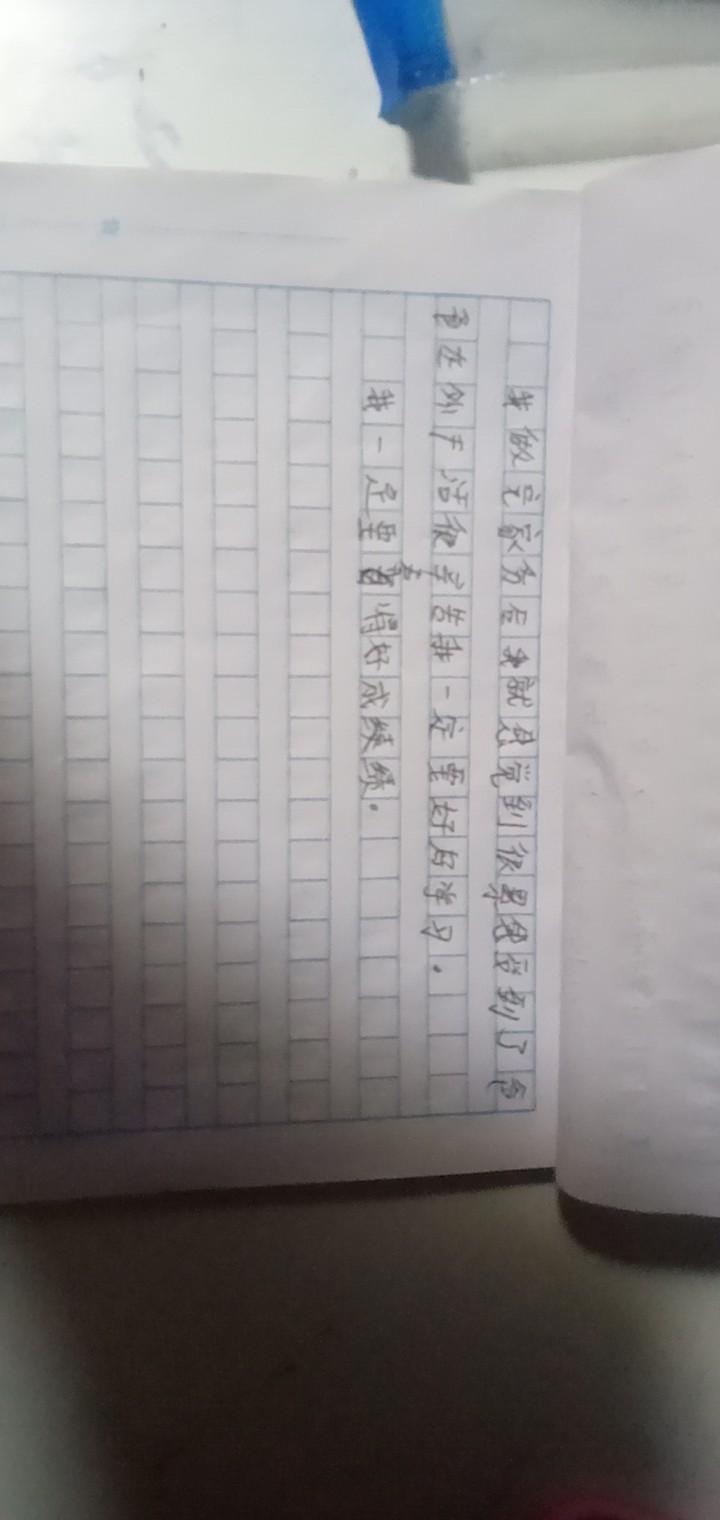 我做完家务后我就感觉到很累体会到了爸
爸在外干活很辛苦我一定要好好学习.
我一定要考得好成绩.